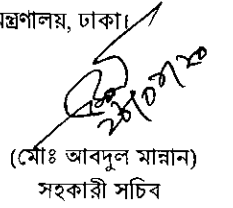 মন্ত্রণালয়, ঢাকা।
(মোঃ আবদুল মান্নান)
সহকারী সচিব